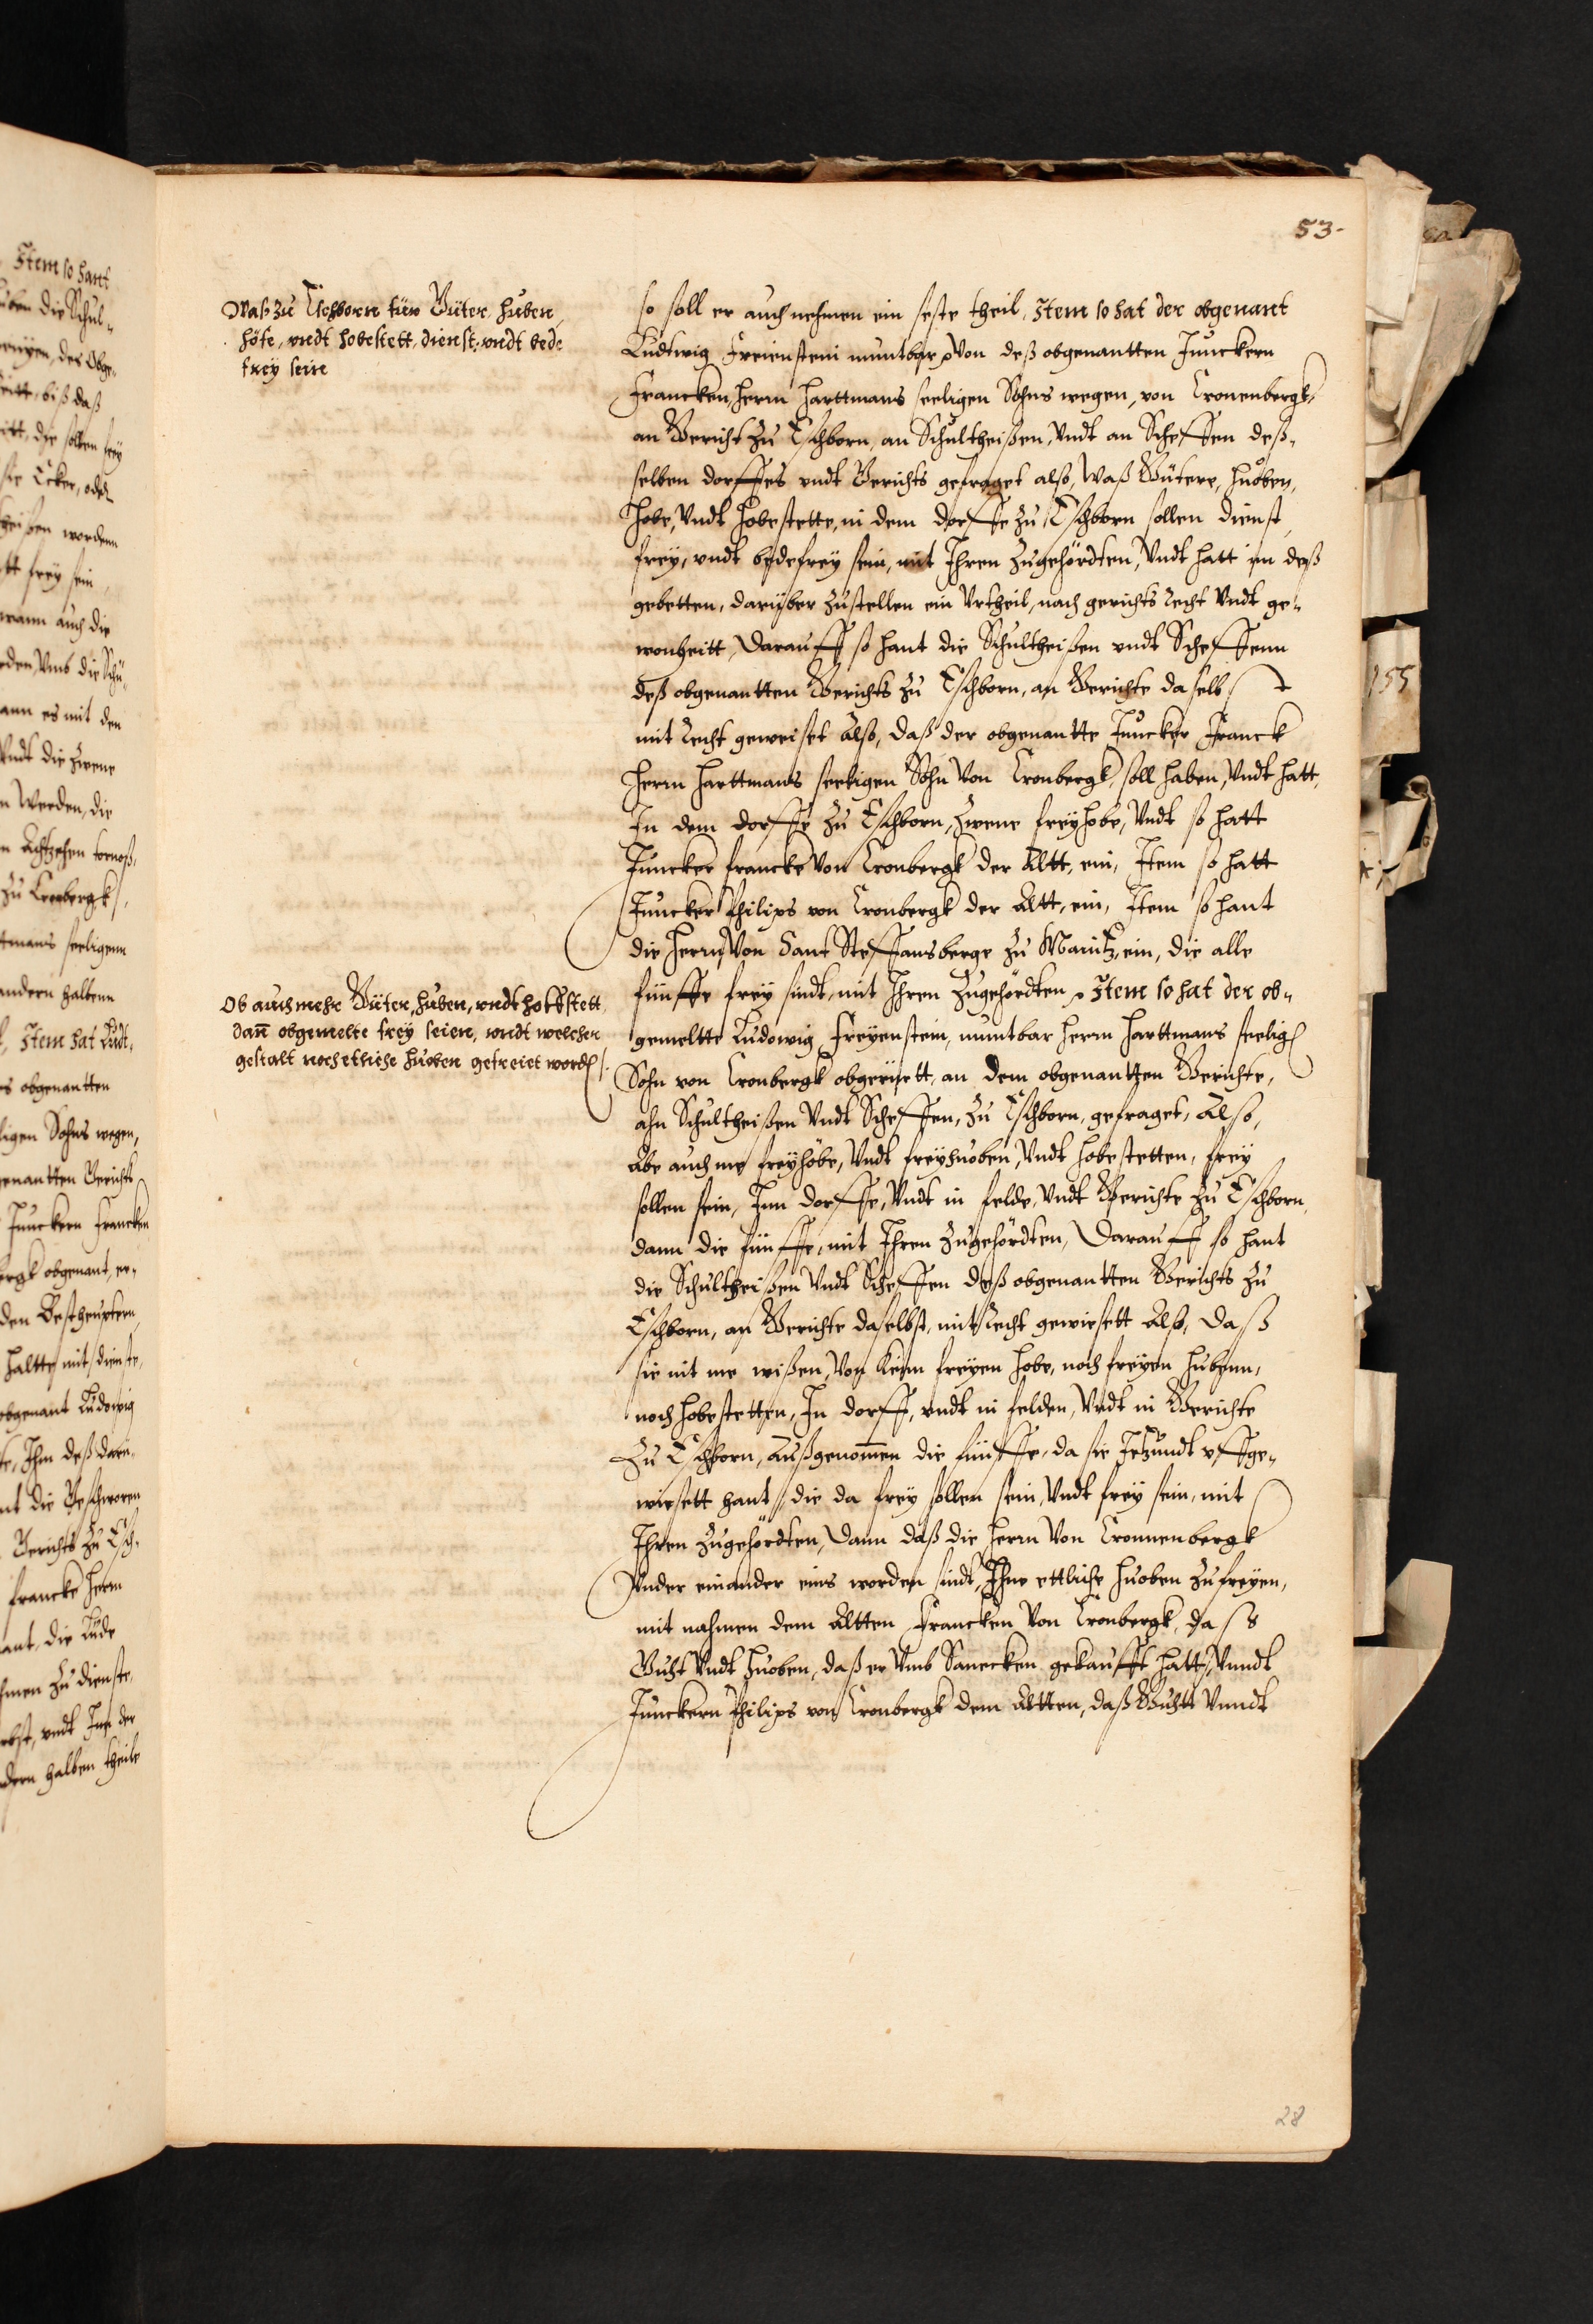 53.
Waß zu Eschborn für Güter, huben,
höfe, vndt hobestett, dienst, vndt bede
frey seie
so soll er auch nehmen ein seste theil, Item so hat der obgenant
Ludtwig Freiensteni muntbar, Von deß obgenantten Junckern
Francken, Herrn Harttmans seeligen Sohns wegen, von Cronenbergk,
an Gericht zu Eschborn, an Schultheißen, Vndt an Scheffen deß-
selben dorffes vndt Gerichts gefraget alß, Waß Gütere, Huoben,
Hobe, Vndt Hobestette, in dem dorffe zu Eschborn sollen dienst,
frey, vndt bedefrey sein, mit Ihren Zugehördten, Vndt hatt im deß
gebetten, darüber zustellen ein Vrtheil, nach gerichts Recht Vndt ge-
wonheitt, Darauff so hant die Schultheißen vndt Scheffenn
deß obgenantten Gerichts zu Eschborn, an Gerichte daselbst
mit Recht geweiset Alß, daß der obgenantte Juncker Franck
Herrn Harttmans seeligen Sohn Von Cronbergk, soll haben, Vndt hatt,
In dem dorffe zu Eschborn, Zwene freyhobe, Vndt so hatt
Juncker Francke Von Cronbergk der Altt, ein, Item so hatt
Juncker Philips von Cronbergk der Altt, ein, Item so hant
die Herrn Von Sant Steffansberge zu Maintz, ein, die alle
fünffe frey sindt, mit Ihren Zugehördten, Item so hat der ob-
Ob auch mehr Güter, huben, vndt hoffstett,
dan̄ obgemelte frey seien, vndt welcher
gestalt noch etliche huoben gefreiet word.
gemeltte Ludowig Freyenstein, muntbar Herrn Harttmans seelig
Sohn von Cronbergk obgerürtt, an dem obgenantten Gerichte,
ahn Schultheißen Vndt Scheffen, zu Eschborn, gefraget, Alß,
Abe auch me freyhöbe, Vndt freyhuoben, Vndt hobestetten, frey
sollen sein, Inn dorffe, Vndt in felde, Vndt Gerichte zu Eschborn,
dann die fünffe, mit Ihren Zugehördten, Darauff so hant
die Schultheißen Vndt Scheffen deß obgenantten Gerichts zu
Eschborn, an Gerichte daselbst, mit Recht gewiesett Alß, daß
sie nit me wißen, Von keim freyen hobe, noch freyen Hubenn,
noch hobestetten, In dorff, vndt in felden, Vndt in Gerichte
Zu Eschborn, Außgenom̄en die fünffe, da sie Jetzundt vffge-
wiesett hant, die da frey sollen sein, Vndt frey sein, mit
Ihren Zugehördten, Dann daß die Herrn Von Cronnenbergk
Vnder einander eins worden sindt, Ihne ettliche Huoben zufreyen,
mit nahmen dem Altten Francken Von Cronbergk, daß
Guht Vndt Huoben, daß er Vmb Sanecken gekaufft hatt, Vnndt
Junckern Philips von Cronbergk dem Altten, daß Guhtt Vnndt
155
28